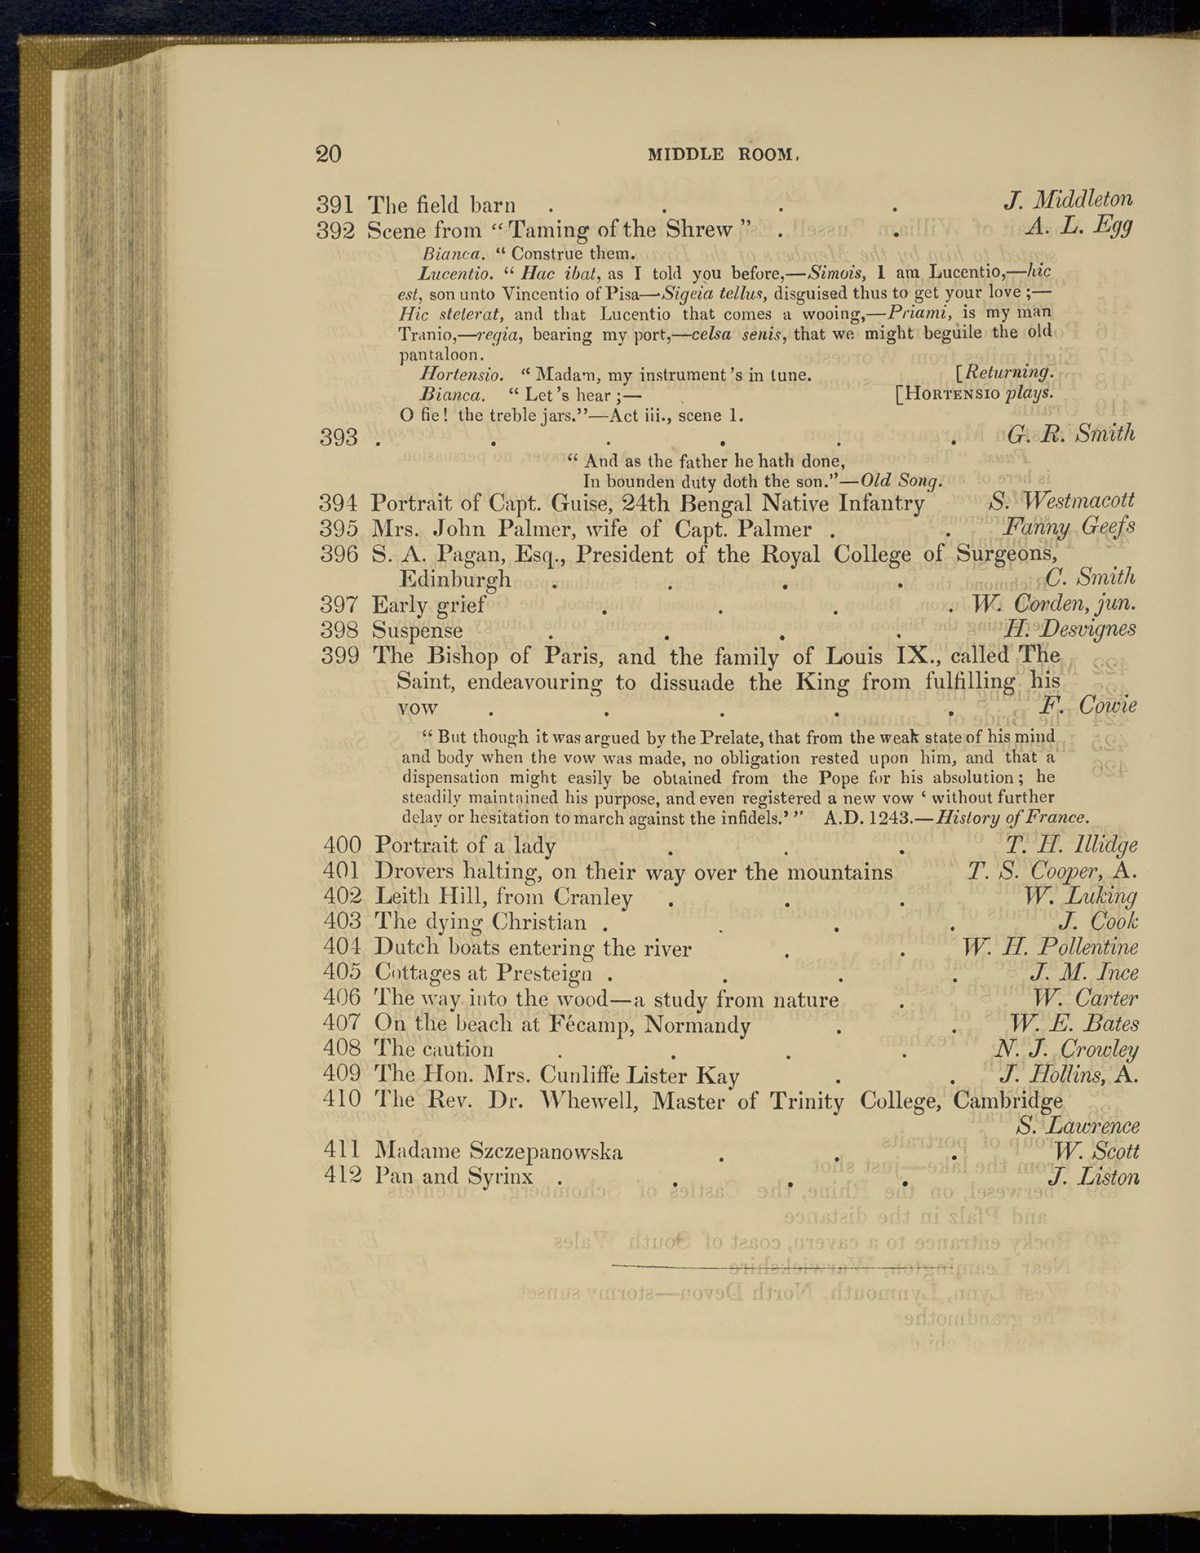 20
MIDDLE ROOM.
391 The field barn . . . . J. Middleton
392 Scene from “Taming of the Shrew” . . A. L. Egg
Bianca. “Construe them.
Lucentio. “Hac ibat, as I told you before,—Simois, I am Lucentio,—hic
est, son unto Vincentio of Pisa—Sigeia tellus, disguised thus to get your love;—
Hic steterat, and that Lucentio that comes a wooing,—Priami, is my man
Tranio,—regia, bearing my port,—celsa senis, that we might beguile the old
pantaloon.
Hortensio. “Madam, my instrument's in tune. [Returning.
Bianca. “Let's hear;— [HORTENSIO plays.
O fie! the treble jars.”—Act iii., scene 1.
393 . . . . . . G. R. Smith
“And as the father he hath done,
In bounden duty doth the son.”—Old Song.
394 Portrait of Capt. Guise, 24th Bengal Native Infantry S. Westmacott
395 Mrs. John Palmer, wife of Capt. Palmer . . Fanny Geefs
396 S. A. Pagan, Esq., President of the Royal College of Surgeons,
Edinburgh . . . . C. Smith
397 Early grief . . . . W. Corden, jun.
398 Suspense . . . . H. Desvignes
399 The Bishop of Paris, and the family of Louis IX., called The
Saint, endeavouring to dissuade the King from fulfilling his
vow . . . . . F. Cowie
“But though it was argued by the Prelate, that from the weak state of his mind
and body when the vow was made, no obligation rested upon him, and that a
dispensation might easily be obtained from the Pope for his absolution; he
steadily maintained his purpose, and even registered a new vow ‘without further
delay or hesitation to march against the infidels.’” A.D. 1243.—History of France.
400 Portrait of a lady . . . T. H. Illidge
401 Drovers halting, on their way over the mountains T. S. Cooper, A.
402 Leith Hill, from Cranley . . . W. Luking
403 The dying Christian . . . . J. Cook
404 Dutch boats entering the river . . W. H. Pollentine
405 Cottages at Presteign . . . . J. M. Ince
406 The way into the wood—a study from nature . W. Carter
407 On the beach at Fécamp, Normandy . . W. E. Bates
408 The caution . . . . N. J. Crowley
409 The Hon. Mrs. Cunliffe Lister Kay . . J. Hollins, A.
410 The Rev. Dr. Whewell, Master of Trinity College, Cambridge
S. Lawrence
411 Madame Szczepanowska . . . W. Scott
412 Pan and Syrinx . . . . J. Liston